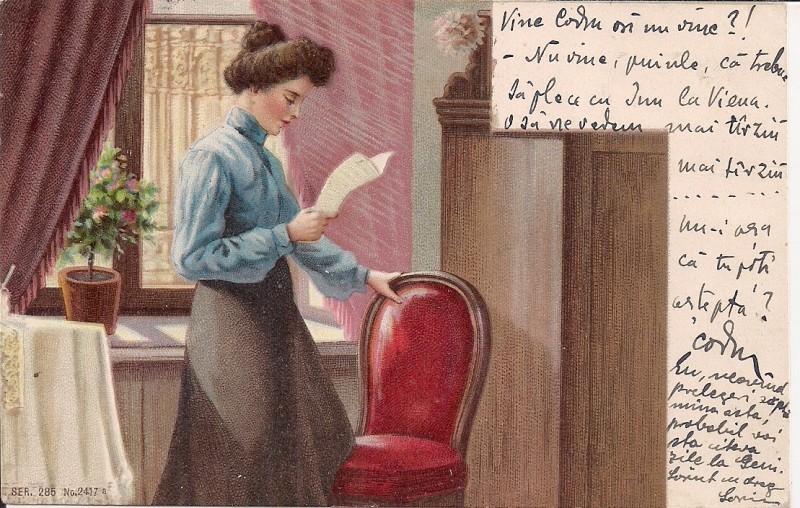 Vine Codru ori nu vine?!
- Nu vine, puiule, că trebue
să plece cu Inu la Viena.
o să ne vedem mai tîrziu
mai tîrziu
nu-i aşa
că tu poţi
aştepta?
Codru
Eu, neavînd
prelegeri săptă
mîna asta,
probabil voi
sta cîteva
zile la
Sărut cu drag
SER. 285 No. 2417 a